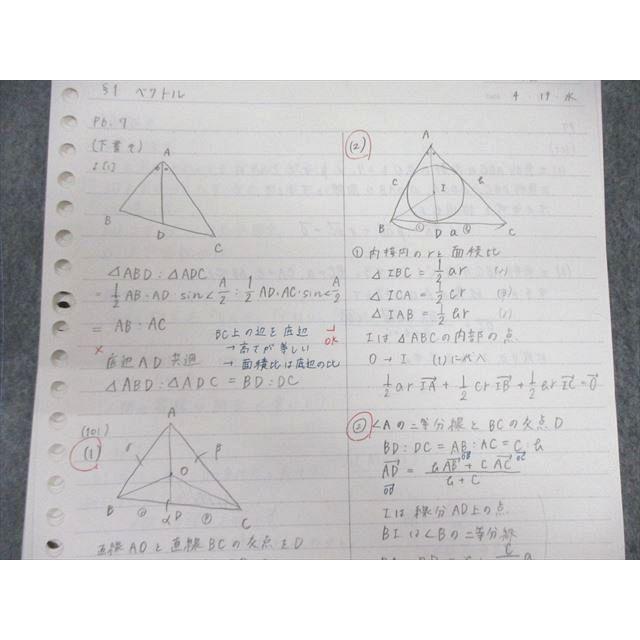 §1 ベクトル
4・19・水
P6.7
(下書き)
A
B
D
C
△ABD:△ADC
= 1/2 AB・AD sin∠A/2 : 1/2 AD・AC・sin∠A/2
= AB:AC
×
BC上の辺を底辺
→高さが等しい
→面積比は底辺の比
OK
底辺AD共通
△ABD:△ADC = BD:DC
(101)
(1)
A
γ
β
O
B
α
D
C
直線AOと直線BCの交点をD
(2)
A
c
I
B
D
a
C
① 内接円のrと面積比
△IBC = 1/2 ar (α)
△ICA = 1/2 br (β)
△IAB = 1/2 cr (γ)
Iは△ABCの内部の点
O→I (1)に代入
1/2 ar IA→ + 1/2 br IB→ + 1/2 cr IC→ = 0→
② ∠Aの二等分線とBCの交点D
BD:DC = AB:AC = c:b
AD→ = (bAB→ + cAC→)/(b+c)
Iは線分AD上の点
BIは∠Bの二等分線